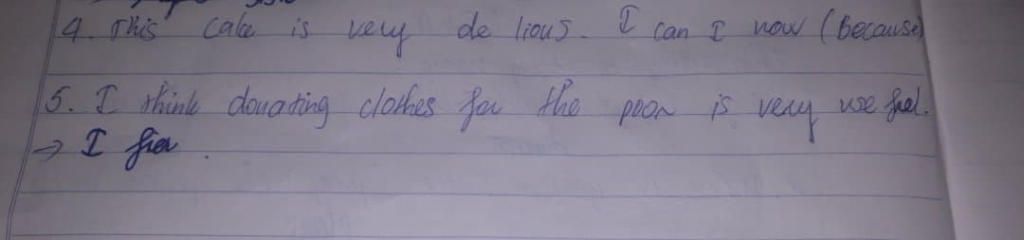 4. This cake is very de lious. I can I now (because)
5. I think donating clothes for the poor is very use ful.
→ I fin